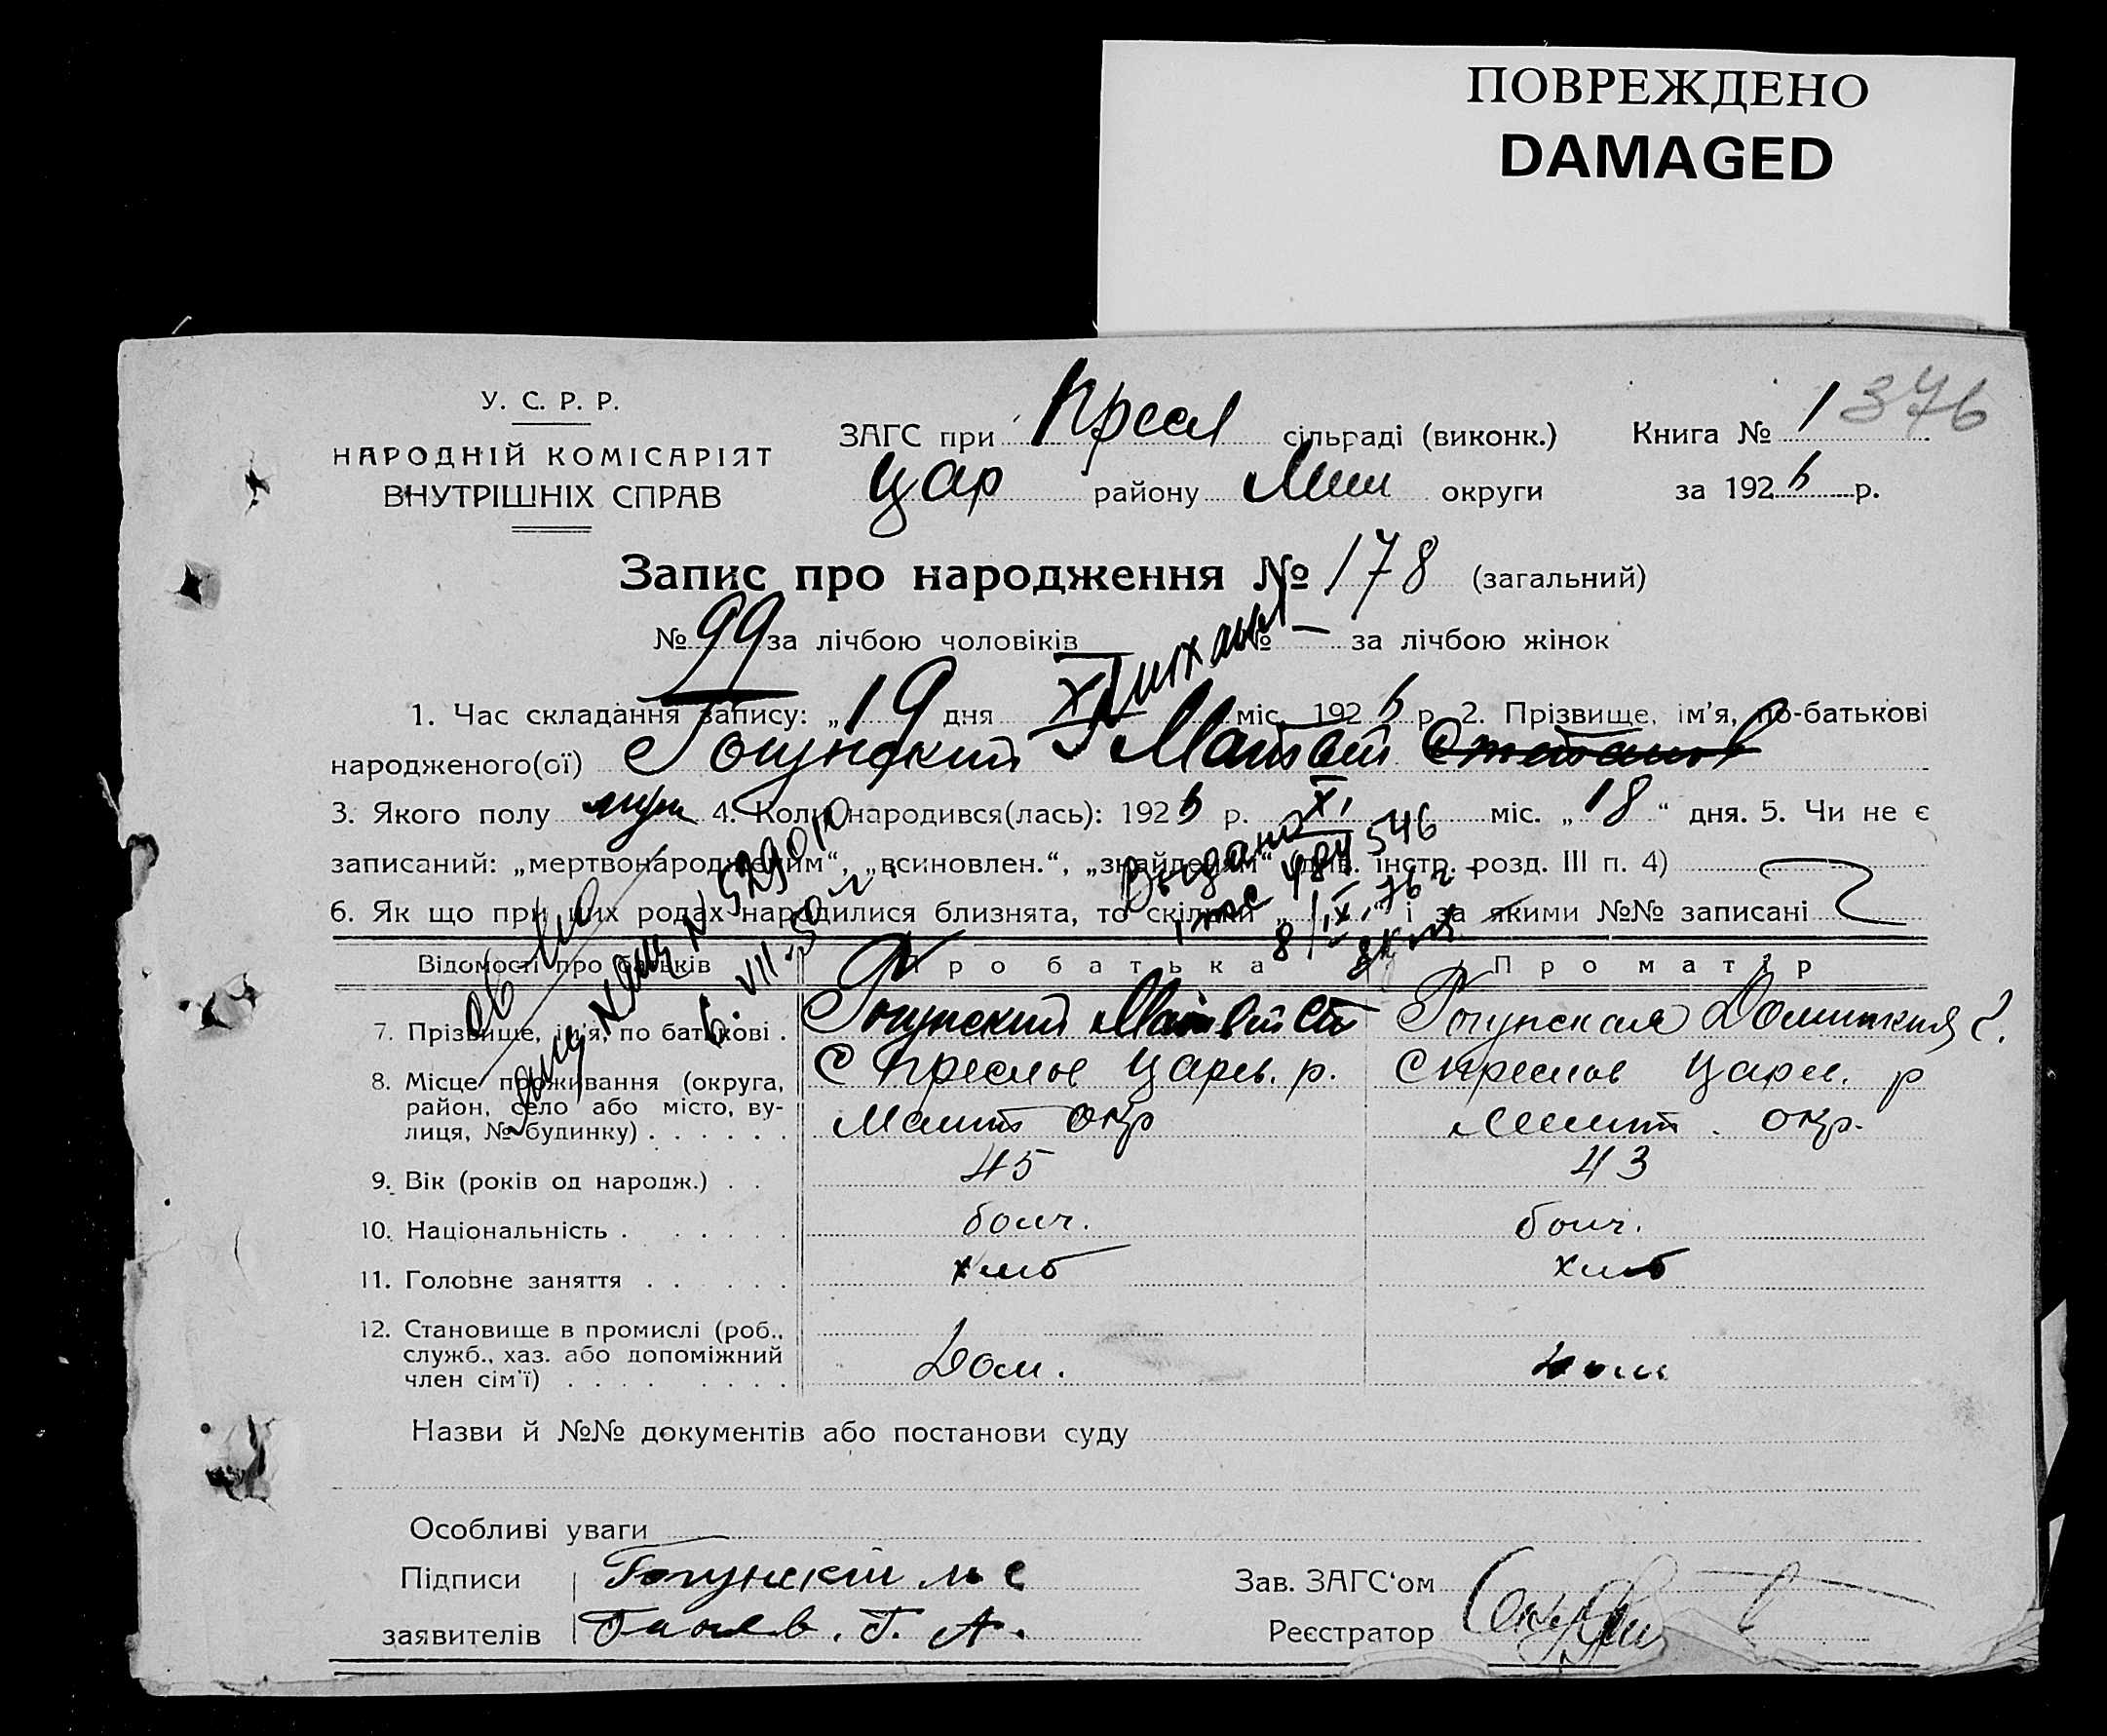 ПОВРЕЖДЕНО
DAMAGED
У. С. Р. Р.
НАРОДНІЙ КОМІСАРІЯТ
ВНУТРІШНІХ СПРАВ
ЗАГС при Пресл сільраді (виконк.)
Цар району Мел округи
Книга № 1 376
за 1926 р.
Запис про народження № 178 (загальний)
№ 99 за лічбою чоловіків № — за лічбою жінок
1. Час складання запису: „19 дня XI міс. 1926 р. 2. Прізвище, ім'я, по-батькові
народженого(ої) Гогунский Матвей
3. Якого полу муж 4. Коли народився(лась): 1926 р. XI міс. „18“ дня. 5. Чи не є
записаний: „мертвонародженим“, „всиновлен.“, „знайденим“ (див. інстр. розд. III п. 4)
6. Як що при цих родах народилися близнята, то скільки „ “ і за якими №№ записані
Выдано
484546
8/IX.76г
№ 529010
6. VII-50 г.
Відомості про батьків Про батька Про матір
7. Прізвище, ім'я, по батькові . Гогунский Матвей Ст Гогунская Доминикия
8. Місце проживання (округа, район, село або місто, вулиця, № будинку) . . . . . .
С Преслов Царев. р. С Преслов Царев. р
Мелит окр Мелит. окр.
9. Вік (років од народж.) . . 45 43
10. Національність . . . . . . . болг. болг.
11. Головне заняття . . . . . хлеб хлеб
12. Становище в промислі (роб., служб., хаз. або допоміжний член сім'ї) . . . . . . . .
Дом. дом
Назви й №№ документів або постанови суду
Особливі уваги
Підписи Гогунский м с
заявителів Ганев. Г. А.
Зав. ЗАГС'ом
Реєстратор